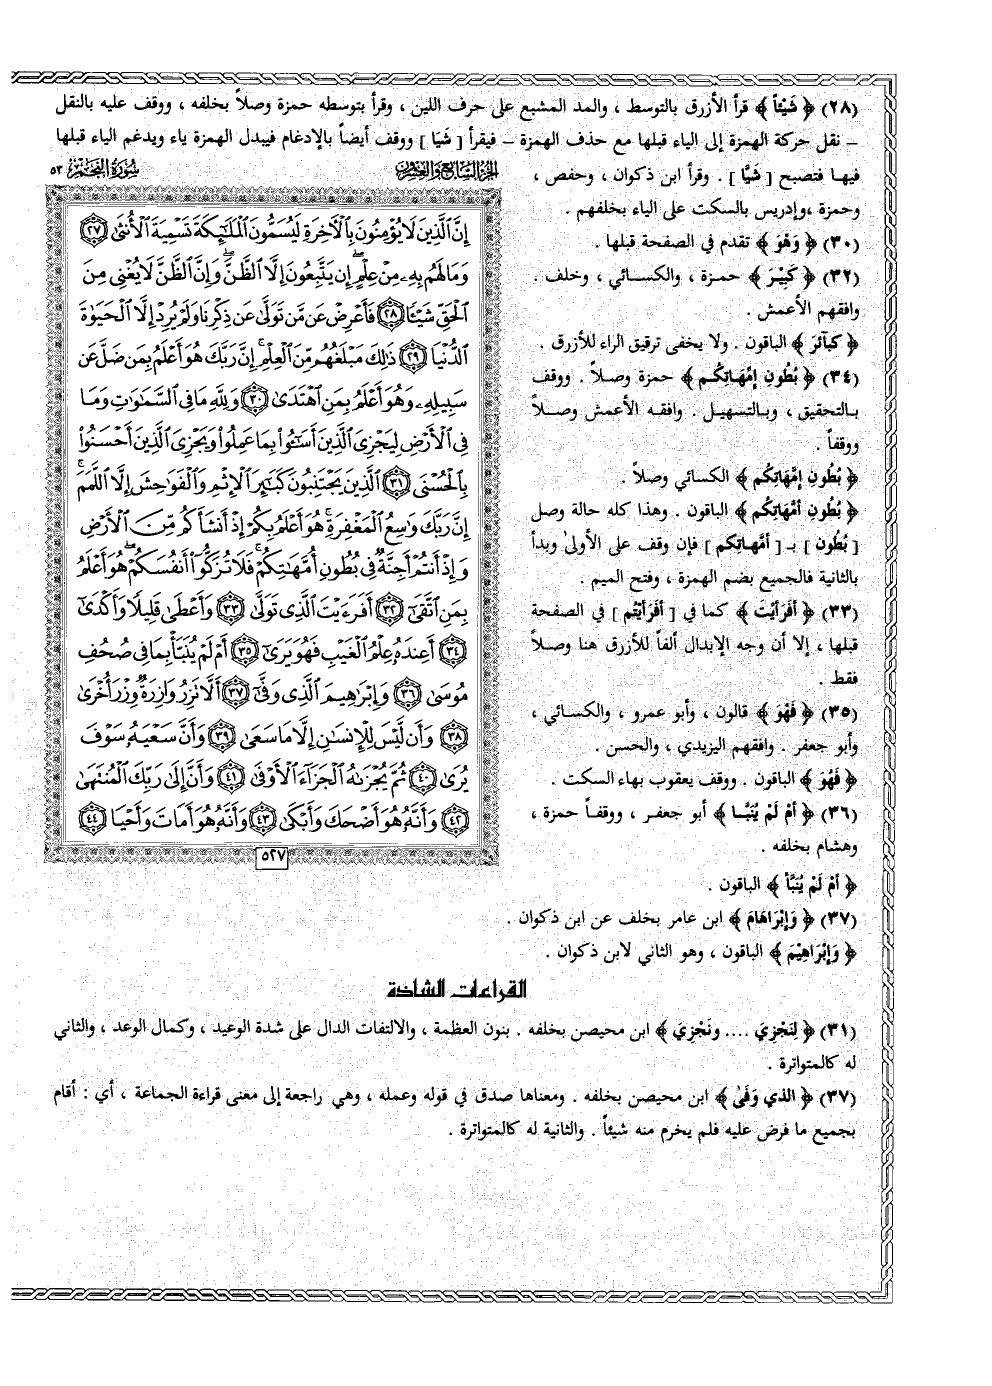 (٢٨) ﴿ شَيْئاً ﴾ قرأ الأزرق بالتوسط ، والمد المشبع على حرف اللين ، وقرأ بتوسطه حمزة وصلاً بخلفه ، ووقف عليه بالنقل
– نقل حركة الهمزة إلى الياء قبلها مع حذف الهمزة – فيقرأ [ شَيَا ] ووقف أيضاً بالإدغام فيبدل الهمزة ياء ويدغم الياء قبلها
فيها فتصبح [ شَيًّا ] . وقرأ ابن ذكوان ، وحفص ،
وحمزة ،وإدريس بالسكت على الياء بخلفهم .
(٣٠) ﴿ وَهْوَ ﴾ تقدم في الصفحة قبلها .
(٣٢) ﴿ كَبِيْرَ ﴾ حمزة ، والكسائي ، وخلف .
وافقهم الأعمش .
﴿ كَبَآئرَ ﴾ الباقون . ولا يخفى ترقيق الراء للأزرق .
(٣٤) ﴿ بُطُونِ إِمِّهَاتِكُـم ﴾ حمزة وصلاً . ووقف
بالتحقيق ، وبالتسهيل . وافقه الأعمش وصلاً
ووقفاً .
﴿ بُطُونِ إِمَّهَاتِكُم ﴾ الكسائي وصلاً .
﴿ بُطُونِ أُمَّهَاتِكُم ﴾ الباقون . وهذا كله حالة وصل
[ بُطُون ] بـ [ أمَّهاتِكم ] فإن وقف على الأولىٰ وبدأ
بالثانية فالجميع بضم الهمزة ، وفتح الميم .
(٣٣) ﴿ أَفَرَأَيْتَ ﴾ كما في [ أَفَرَأَيْتُم ] في الصفحة
قبلها ، إلا أن وجه الإبدال ألفاً للأزرق هنا وصلاً
فقط .
(٣٥) ﴿ فَهْوَ ﴾ قالون ، وأبو عمرو ، والكسائي ،
وأبو جعفر . وافقهم اليزيدي ، والحسن .
﴿ فَهُوَ ﴾ الباقون . ووقف يعقوب بهاء السكت .
(٣٦) ﴿ أمْ لَمْ يُنَبَّـا ﴾ أبو جعفر ، ووقفـاً حمزة ،
وهشام بخلفه .
﴿ أمْ لَمْ يُنَبَّأْ ﴾ الباقون .
(٣٧) ﴿ وَإِبْرَاهَامَ ﴾ ابن عامر بخلف عن ابن ذكوان .
﴿ وَإِبْرَاهِيْمَ ﴾ الباقون ، وهو الثاني لابن ذكوان .
الجزء السابع والعشرون
سورة النجم ٥٣
إِنَّ ٱلَّذِينَ لَا يُؤْمِنُونَ بِٱلْأَخِرَةِ لَيُسَمُّونَ ٱلْمَلَٰٓئِكَةَ تَسْمِيَةَ ٱلْأُنثَىٰ ٢٧
وَمَا لَهُم بِهِۦ مِنْ عِلْمٍ إِن يَتَّبِعُونَ إِلَّا ٱلظَّنَّ وَإِنَّ ٱلظَّنَّ لَا يُغْنِى مِنَ
ٱلْحَقِّ شَيْـًٔا ٢٨ فَأَعْرِضْ عَن مَّن تَوَلَّىٰ عَن ذِكْرِنَا وَلَمْ يُرِدْ إِلَّا ٱلْحَيَوٰةَ
ٱلدُّنْيَا ٢٩ ذَٰلِكَ مَبْلَغُهُم مِّنَ ٱلْعِلْمِ إِنَّ رَبَّكَ هُوَ أَعْلَمُ بِمَن ضَلَّ عَن
سَبِيلِهِۦ وَهُوَ أَعْلَمُ بِمَنِ ٱهْتَدَىٰ ٣٠ وَلِلَّهِ مَا فِى ٱلسَّمَٰوَٰتِ وَمَا
فِى ٱلْأَرْضِ لِيَجْزِىَ ٱلَّذِينَ أَسَٰٓـُٔوا۟ بِمَا عَمِلُوا۟ وَيَجْزِىَ ٱلَّذِينَ أَحْسَنُوا۟
بِٱلْحُسْنَى ٣١ ٱلَّذِينَ يَجْتَنِبُونَ كَبَٰٓئِرَ ٱلْإِثْمِ وَٱلْفَوَٰحِشَ إِلَّا ٱللَّمَمَ
إِنَّ رَبَّكَ وَٰسِعُ ٱلْمَغْفِرَةِ هُوَ أَعْلَمُ بِكُمْ إِذْ أَنشَأَكُم مِّنَ ٱلْأَرْضِ
وَإِذْ أَنتُمْ أَجِنَّةٌ فِى بُطُونِ أُمَّهَٰتِكُمْ فَلَا تُزَكُّوٓا۟ أَنفُسَكُمْ هُوَ أَعْلَمُ
بِمَنِ ٱتَّقَىٰٓ ٣٢ أَفَرَءَيْتَ ٱلَّذِى تَوَلَّىٰ ٣٣ وَأَعْطَىٰ قَلِيلًا وَأَكْدَىٰٓ
٣٤ أَعِندَهُۥ عِلْمُ ٱلْغَيْبِ فَهُوَ يَرَىٰٓ ٣٥ أَمْ لَمْ يُنَبَّأْ بِمَا فِى صُحُفِ
مُوسَىٰ ٣٦ وَإِبْرَٰهِيمَ ٱلَّذِى وَفَّىٰٓ ٣٧ أَلَّا تَزِرُ وَازِرَةٌ وِزْرَ أُخْرَىٰ
٣٨ وَأَن لَّيْسَ لِلْإِنسَٰنِ إِلَّا مَا سَعَىٰ ٣٩ وَأَنَّ سَعْيَهُۥ سَوْفَ
يُرَىٰ ٤٠ ثُمَّ يُجْزَىٰهُ ٱلْجَزَآءَ ٱلْأَوْفَىٰ ٤١ وَأَنَّ إِلَىٰ رَبِّكَ ٱلْمُنتَهَىٰ
٤٢ وَأَنَّهُۥ هُوَ أَضْحَكَ وَأَبْكَىٰ ٤٣ وَأَنَّهُۥ هُوَ أَمَاتَ وَأَحْيَا ٤٤
٥٢٧
القراءات الشاذة
(٣١) ﴿ لِنَجْزِيَ .... ونَجْزِيَ ﴾ ابن محيصن بخلفه . بنون العظمة ، والالتفات الدال على شدة الوعيد ، وكمال الوعد ، والثاني
له كالمتواترة .
(٣٧) ﴿ الذي وَفَىٰ ﴾ ابن محيصن بخلفه . ومعناها صدق في قوله وعمله ، وهي راجعة إلى معنى قراءة الجماعة ، أي : أقام
بجميع ما فرض عليه فلم يخرم منه شيئاً . والثانية له كالمتواترة .